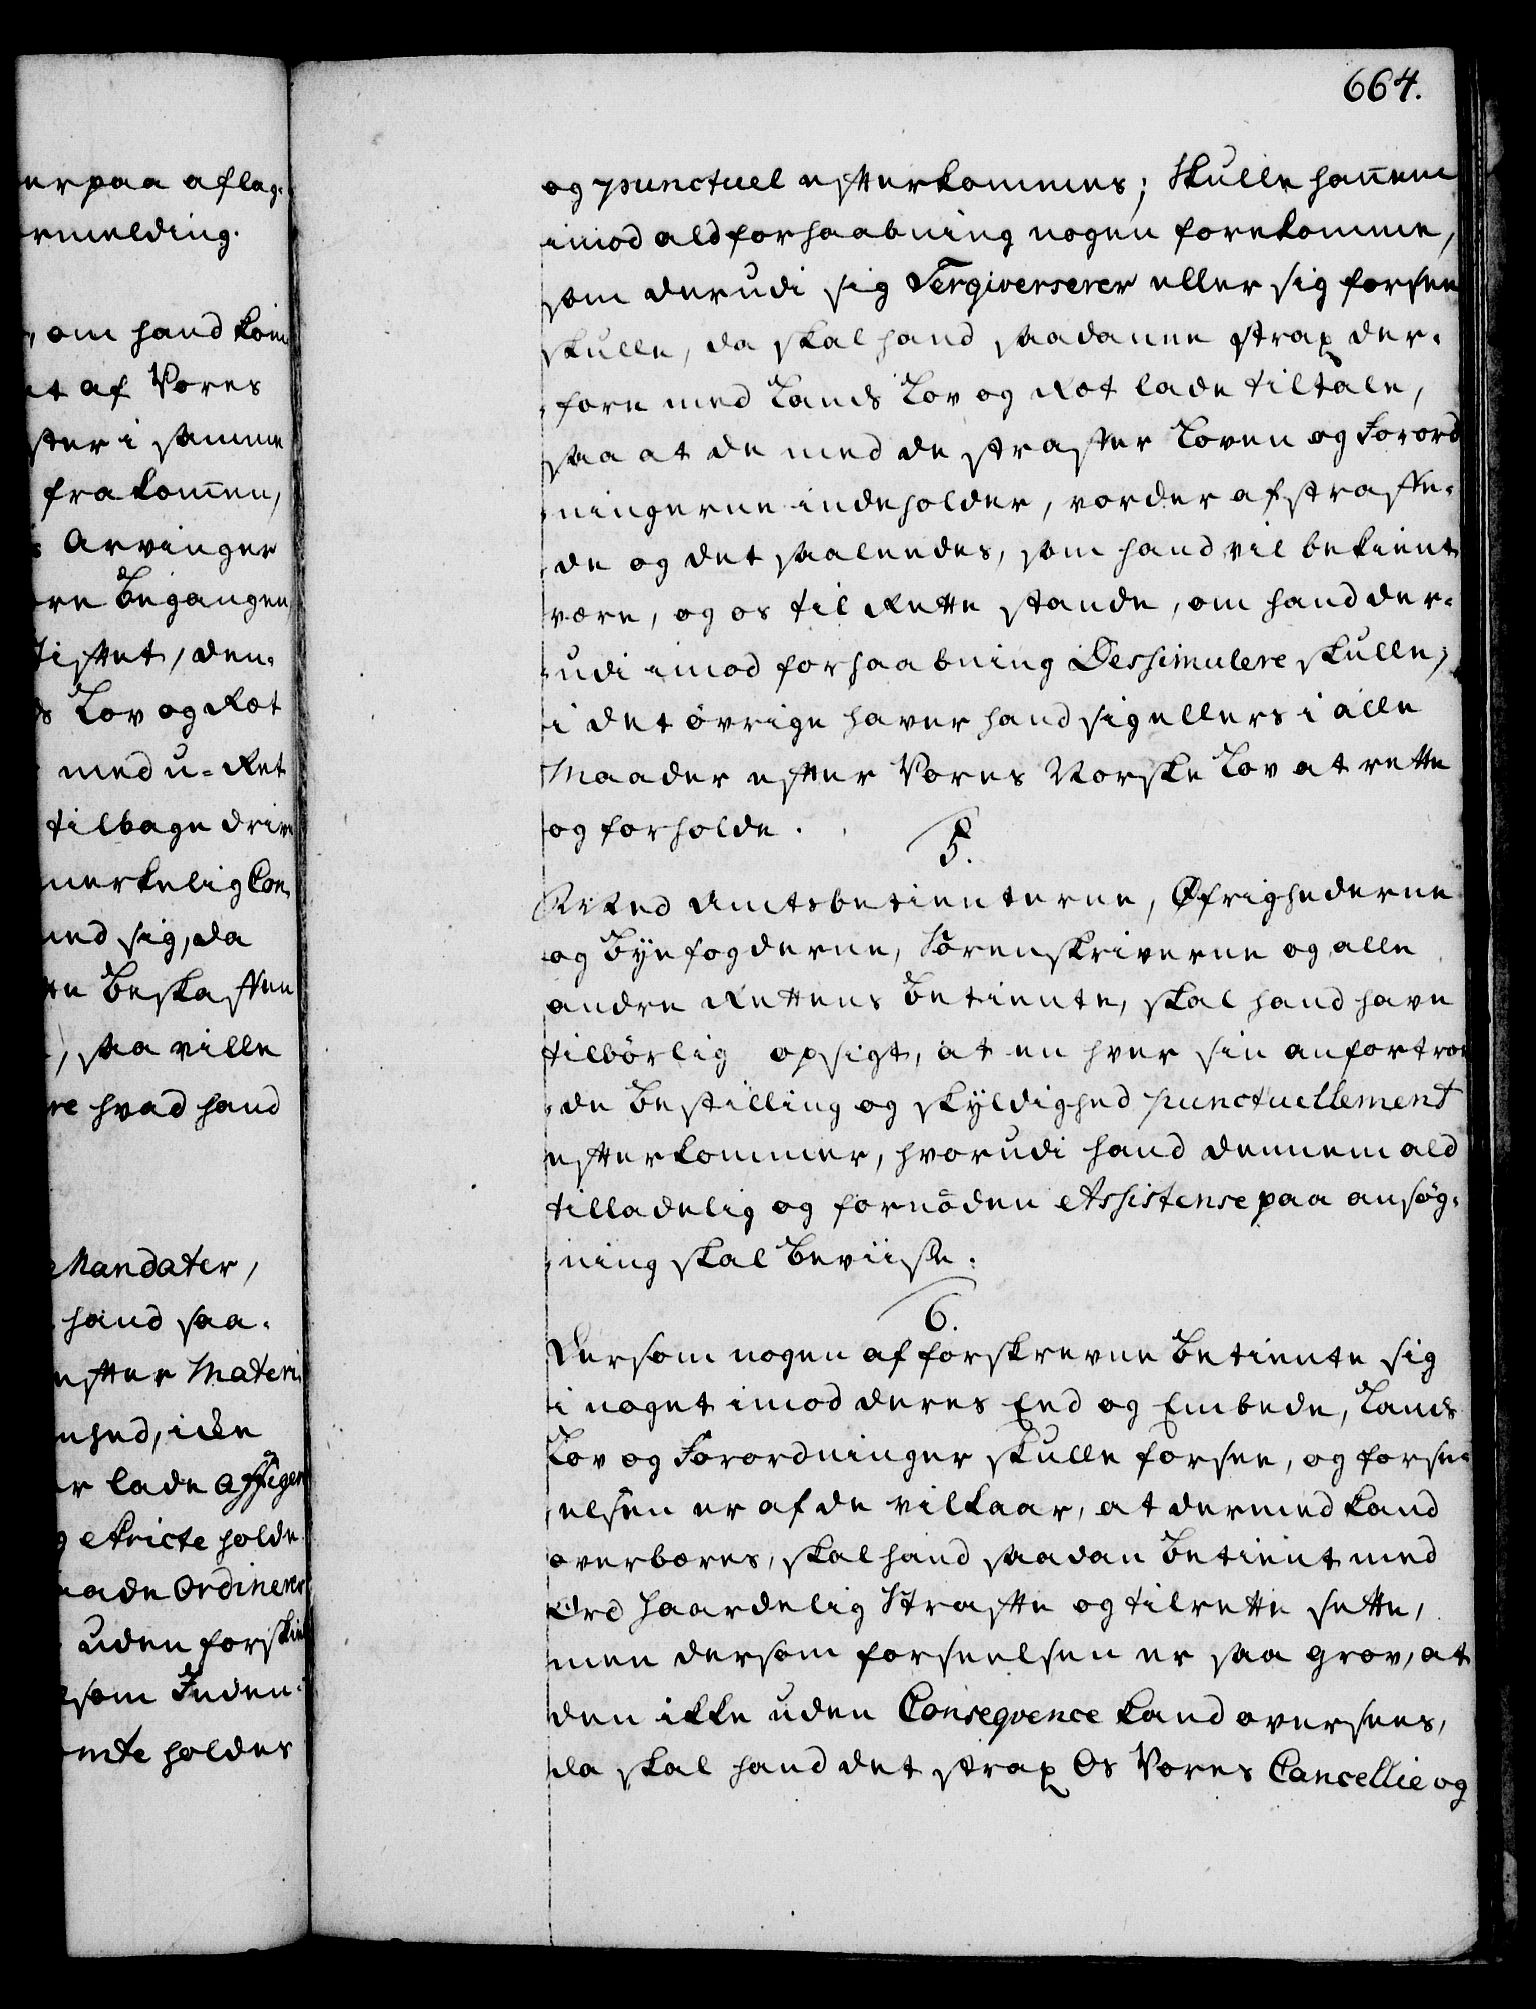 664.
erpaa aflag-
rmelding.
om hand kom
et af Vores
ster i samme
fra kom̄en,
Arvinger
re Begangen,
tiftet, den-
Lov og Ret
med u-Ret
tilbage driv
merkelig Con-
med sig, da
Beskaffen
, saa ville
re hvad hand
Mandater,
hand saa-
efter Materi
hed, icke
r lade Affiger
stricte holde
ade Ordinerer
uden forskiel
som Inden-
emte holdes
og punctuel efterkommes; Skulle han̄em
imod ald forhaabning nogen forekomme,
som derudi sig Tergiverserer eller sig forsee
skulle, da skal hand saadanne strax der-
fore med Lands Lov og Ret lade tiltale,
saa at de med de straffer Loven og Forord
ningerne indeholder, vorder afstraffe-
de og det saaleedes, som hand vil bekient
være, og os til Rette stande, om hand der-
udi imod forhaabning Dessimulere skulle;
i det øvrige haver hand sig ellers i alle
Maader efter Vores Norske Lov at rette
og forholde.
5.
Med Amtsbetienterne, Øfrighederne
og Byefogderne, Sorenskriverne og alle
andre Rettens Betiente, skal hand have
tilbørlig opsigt, at en hver sin anfortroe
de Bestilling og skyldighed punctuellement
efterkommer, hvorudi hand dennem ald
tilladelig og fornøden Assistense paa ansøg-
ning skal Beviise.
6.
Dersom nogen af forskrevne Betiente sig
i noget imod deres Eed og Embede, Lands
Lov og Forordninger skulle forsee, og forse-
elsen er af de vilkaar, at dermed kand
overbæres, skal hand saadan Betient med
Ord haardelig Straffe og tilrette sette,
men dersom forseelsen er saa grov, at
den ikke uden Conseqvence kand oversees,
da skal hand det strax Os Vores Cancellie og